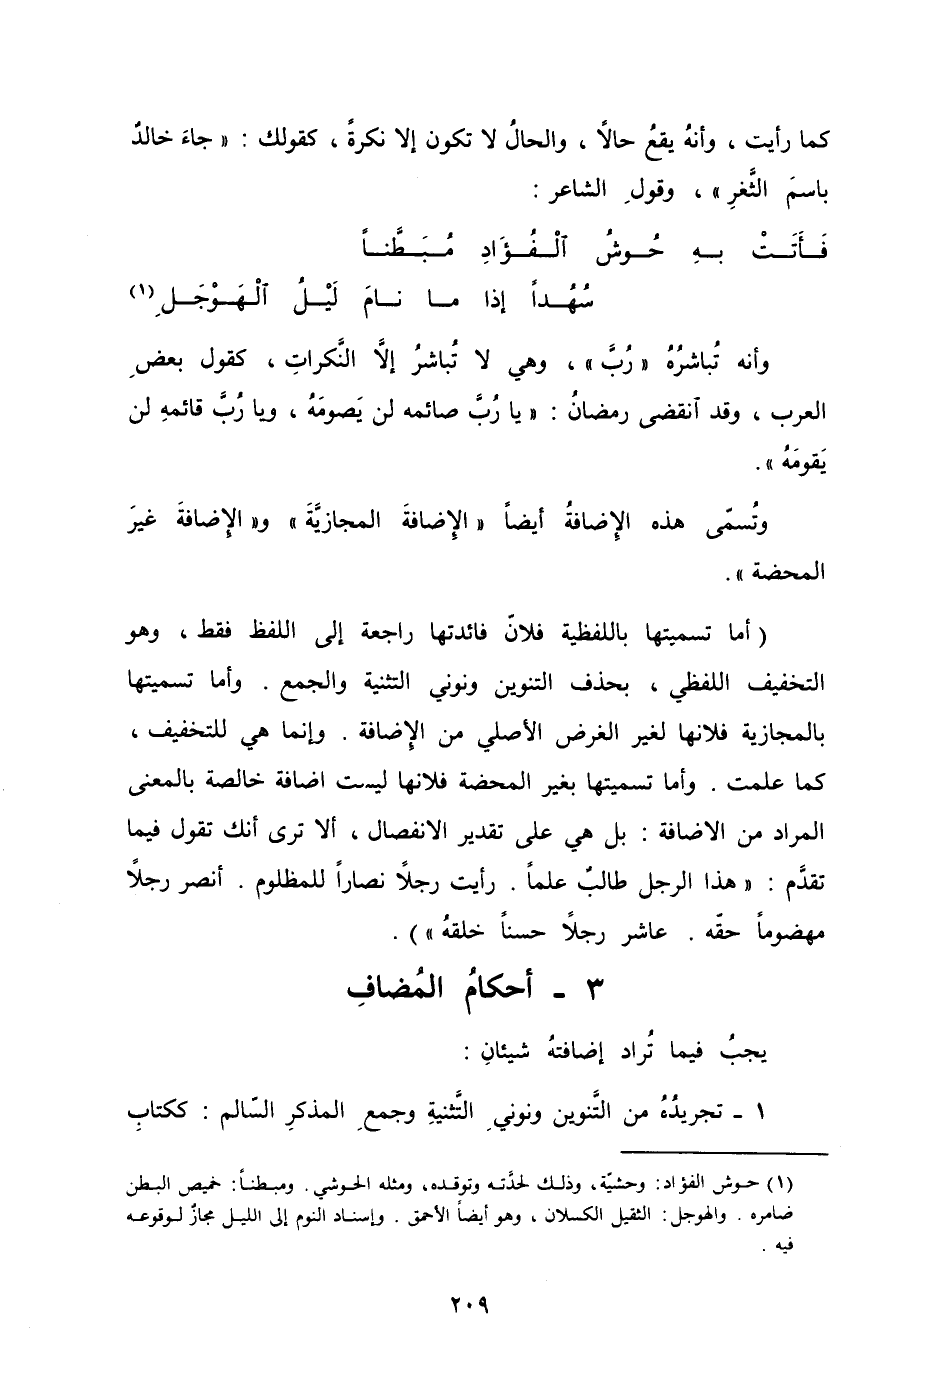 كما رأيت ، وأنهُ يقعُ حالًا ، والحالُ لا تكون إلا نكرةً ، كقولك : « جاءَ خالدٌ
باسمَ الثَّغرِ » ، وقولِ الشاعر :
فَـأَتَـتْ بـهِ حُـوشُ ٱلْـفُـؤَادِ مُـبَـطَّـنـاً
سُهُـداً إذا مـا نـامَ لَيْـلُ ٱلْهَـوْجَـلِ(١)
وأنه تُباشرُهُ « رُبَّ » ، وهي لا تُباشرُ إلَّا النَّكراتِ ، كقول بعضِ
العرب ، وقد ٱنقضى رمضانُ : « يا رُبَّ صائمه لن يَصومَهُ ، ويا رُبَّ قائمهِ لن
يَقومَهُ ».
وتُسمّى هذه الإِضافةُ أيضاً « الإِضافةَ المجازيَّةَ » و« الإِضافةَ غيرَ
المحضة ».
( أما تسميتها باللفظية فلانّ فائدتها راجعة إلى اللفظ فقط ، وهو
التخفيف اللفظي ، بحذف التنوين ونوني التثنية والجمع . وأما تسميتها
بالمجازية فلانها لغير الغرض الأصلي من الإِضافة . وإنما هي للتخفيف ،
كما علمت . وأما تسميتها بغير المحضة فلانها ليست اضافة خالصة بالمعنى
المراد من الاضافة : بل هي على تقدير الانفصال ، ألا ترى أنك تقول فيما
تقدَّم : « هذا الرجل طالبٌ علماً . رأيت رجلًا نصاراً للمظلوم . أنصر رجلًا
مهضوماً حقّه . عاشر رجلًا حسناً خلقهُ » ) .
٣ ـ أحكامُ المُضافِ
يجبُ فيما تُراد إضافتهُ شيئانِ :
١ ـ تجريدُهُ من التَّنوين ونونيِ التَّثنيةِ وجمعِ المذكرِ السّالم : ككتابِ
(١) حـوش الفؤاد: وحشيّة، وذلـك لحدَّتـه وتوقـده، ومثله الحـوشي . ومبـطنـاً: خميص البـطن
ضامره . والهوجل: الثقيل الكسلان ، وهو أيضاً الأحمق . وإسنـاد النوم إلى الليـل مجازٌ لـوقوعـه
فيه .
٢٠٩